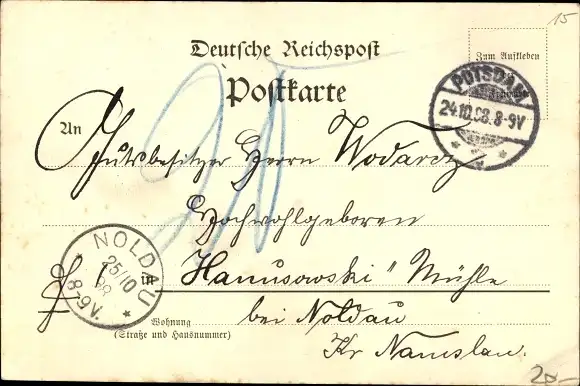 15
Deutsche Reichspost
Zum Aufkleben
Postkarte
POTSDAM
24.10.98.8-9V
An
Gutsbesitzer Herrn Wodarcz
Hochwohlgeboren
NOLDAU
25/10
98
8-9V.
in
Hanusowski" Mühle
Wohnung
(Straße und Hausnummer)
bei Noldau
Kr Namslau.
20.-